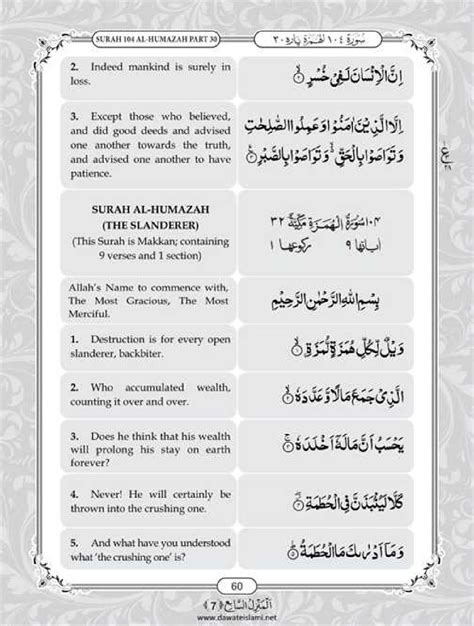 SURAH 104 AL-HUMAZAH PART 30
سُوْرَة ١٠٤ الهُمَزَة پاره ٣٠
2. Indeed mankind is surely in
loss.
اِنَّ الْاِنْسَانَ لَفِیْ خُسْرٍ ۙ﴿۲﴾
3. Except those who believed,
and did good deeds and advised
one another towards the truth,
and advised one another to have
patience.
اِلَّا الَّذِیْنَ اٰمَنُوْا وَ عَمِلُوا الصّٰلِحٰتِ
وَ تَوَاصَوْا بِالْحَقِّ ۙ وَ تَوَاصَوْا بِالصَّبْرِ ﴿۳﴾
ع
SURAH AL-HUMAZAH
(THE SLANDERER)
(This Surah is Makkan; containing
9 verses and 1 section)
١٠٤ سُوْرَةُ الْهُمَزَةِ مَكِّيَّةٌ ٣٢
اٰیاتها ٩ رکوعها ١
Allah's Name to commence with,
The Most Gracious, The Most
Merciful.
بِسْمِ اللهِ الرَّحْمٰنِ الرَّحِیْمِ
1. Destruction is for every open
slanderer, backbiter.
وَیْلٌ لِّكُلِّ هُمَزَةٍ لُّمَزَةِ ۙ﴿۱﴾
2. Who accumulated wealth,
counting it over and over.
الَّذِیْ جَمَعَ مَالًا وَّ عَدَّدَهٗ ۙ﴿۲﴾
3. Does he think that his wealth
will prolong his stay on earth
forever?
یَحْسَبُ اَنَّ مَالَهٗۤ اَخْلَدَهٗ ۚ﴿۳﴾
4. Never! He will certainly be
thrown into the crushing one.
كَلَّا لَیُنْۢبَذَنَّ فِی الْحُطَمَةِ ۖ﴿۴﴾
5. And what have you understood
what 'the crushing one' is?
وَ مَاۤ اَدْرٰىكَ مَا الْحُطَمَةُ ﴿۵﴾
60
اَلْمَنْزِلُ السَّابِع ﴿7﴾
www.dawateislami.net